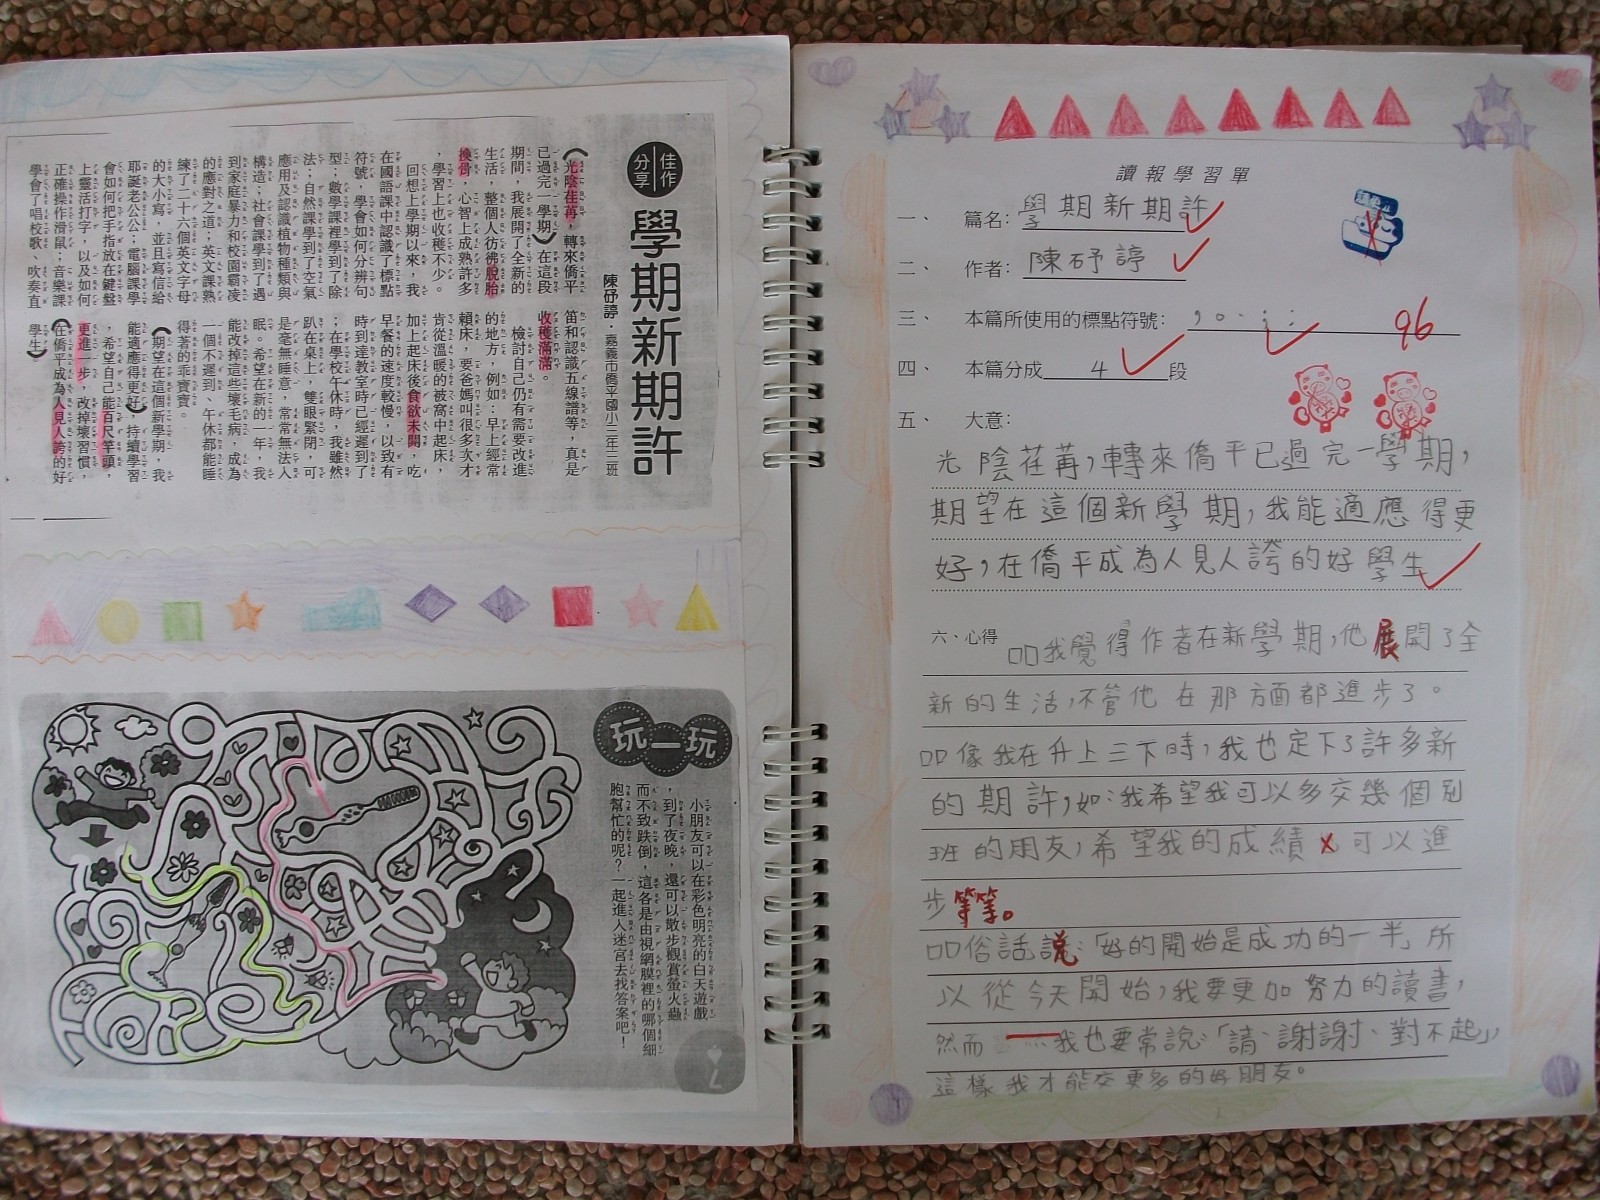 佳作
分享
學期新期許
陳妤諪・嘉義市僑平國小三年三班
光陰荏苒，轉來僑平
已過完一學期》在這段
期間，我展開了全新的
生活，整個人彷彿脫胎
換骨，心智上成熟許多
，學習上也收穫不少。
回想上學期以來，我
在國語課中認識了標點
符號，學會如何分辨句
型；數學課裡學到了除
法；自然課學到了空氣
應用及認識植物種類與
構造；社會課學到了遇
到家庭暴力和校園霸凌
的應對之道；英文課熟
練了二十六個英文字母
的大小寫，並且寫信給
耶誕老公公；電腦課學
會如何把手指放在鍵盤
上靈活打字，以及如何
正確操作滑鼠；音樂課
學會了唱校歌、吹奏直
笛和認識五線譜等，真是
收穫滿滿。
檢討自己仍有需要改進
的地方，例如：早上經常
賴床，要爸媽叫很多次才
肯從溫暖的被窩中起床，
加上起床後食欲未開，吃
早餐的速度較慢，以致有
時到達教室時已經遲到了
；在學校午休時，我雖然
趴在桌上，雙眼緊閉，可
是毫無睡意，常常無法入
眠。希望在新的一年，我
能改掉這些壞毛病，成為
一個不遲到、午休都能睡
得著的乖寶寶。
《期望在這個新學期，我
能適應得更好》，持續學習
，希望自己能百尺竿頭，
更進一步，改掉壞習慣，
《在僑平成為人見人誇的好
學生》
玩一玩
小朋友可以在彩色明亮的白天遊戲
，到了夜晚，還可以散步觀賞螢火蟲
而不致跌倒，這各是由視網膜裡的哪個細
胞幫忙的呢？一起進入迷宮去找答案吧！
讀報學習單
一、 篇名：學期新期許
二、 作者：陳妤諪
三、 本篇所使用的標點符號：，。、；：
96
四、 本篇分成 4 段
五、 大意：
光陰荏苒，轉來僑平已過完一學期，
期望在這個新學期，我能適應得更
好，在僑平成為人見人誇的好學生
六、心得 我覺得作者在新學期，他展開了全
新的生活，不管他在那方面都進步了。
像我在升上三下時，我也定下了許多新
的期許，如：我希望我可以多交幾個別
班的朋友，希望我的成績可以進
步等等。
俗話說：「好的開始是成功的一半，所
以從今天開始，我要更加努力的讀書，
然而 我也要常說：「請、謝謝、對不起」，
這樣我才能交更多的好朋友。